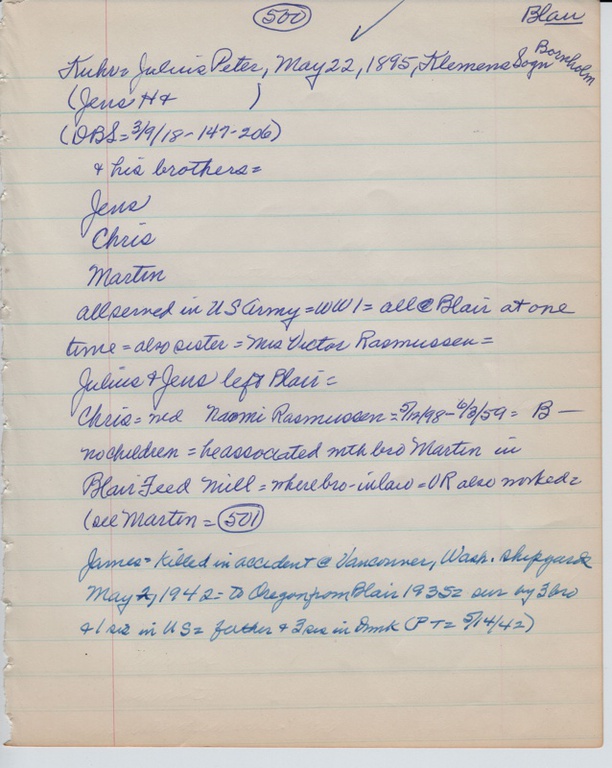 500
Blair
Kuhr = Julius Peter, May 22, 1895, Klemens Sogn Bornholm
(Jens H + )
(OBS = 3/9/18 - 147 - 206)
+ his brothers =
Jens
Chris
Martin
all served in US Army = WW1 = all @ Blair at one
time = also sister = Mrs Victor Rasmussen =
Julius & Jens left Blair =
Chris = md Naomi Rasmussen = 5/12/98 - 6/3/59 = B —
no children = he associated with bro Martin in
Blair Feed Mill = where bro-in law = VR also worked =
(see Martin = 501
James = Killed in accident @ Vancouver, Wash. shipyards
May 2, 1942 = to Oregon from Blair 1935 = sur by 3 bro
& 1 sis in US = father & 3 sis in Dmk (PT = 5/14/42)